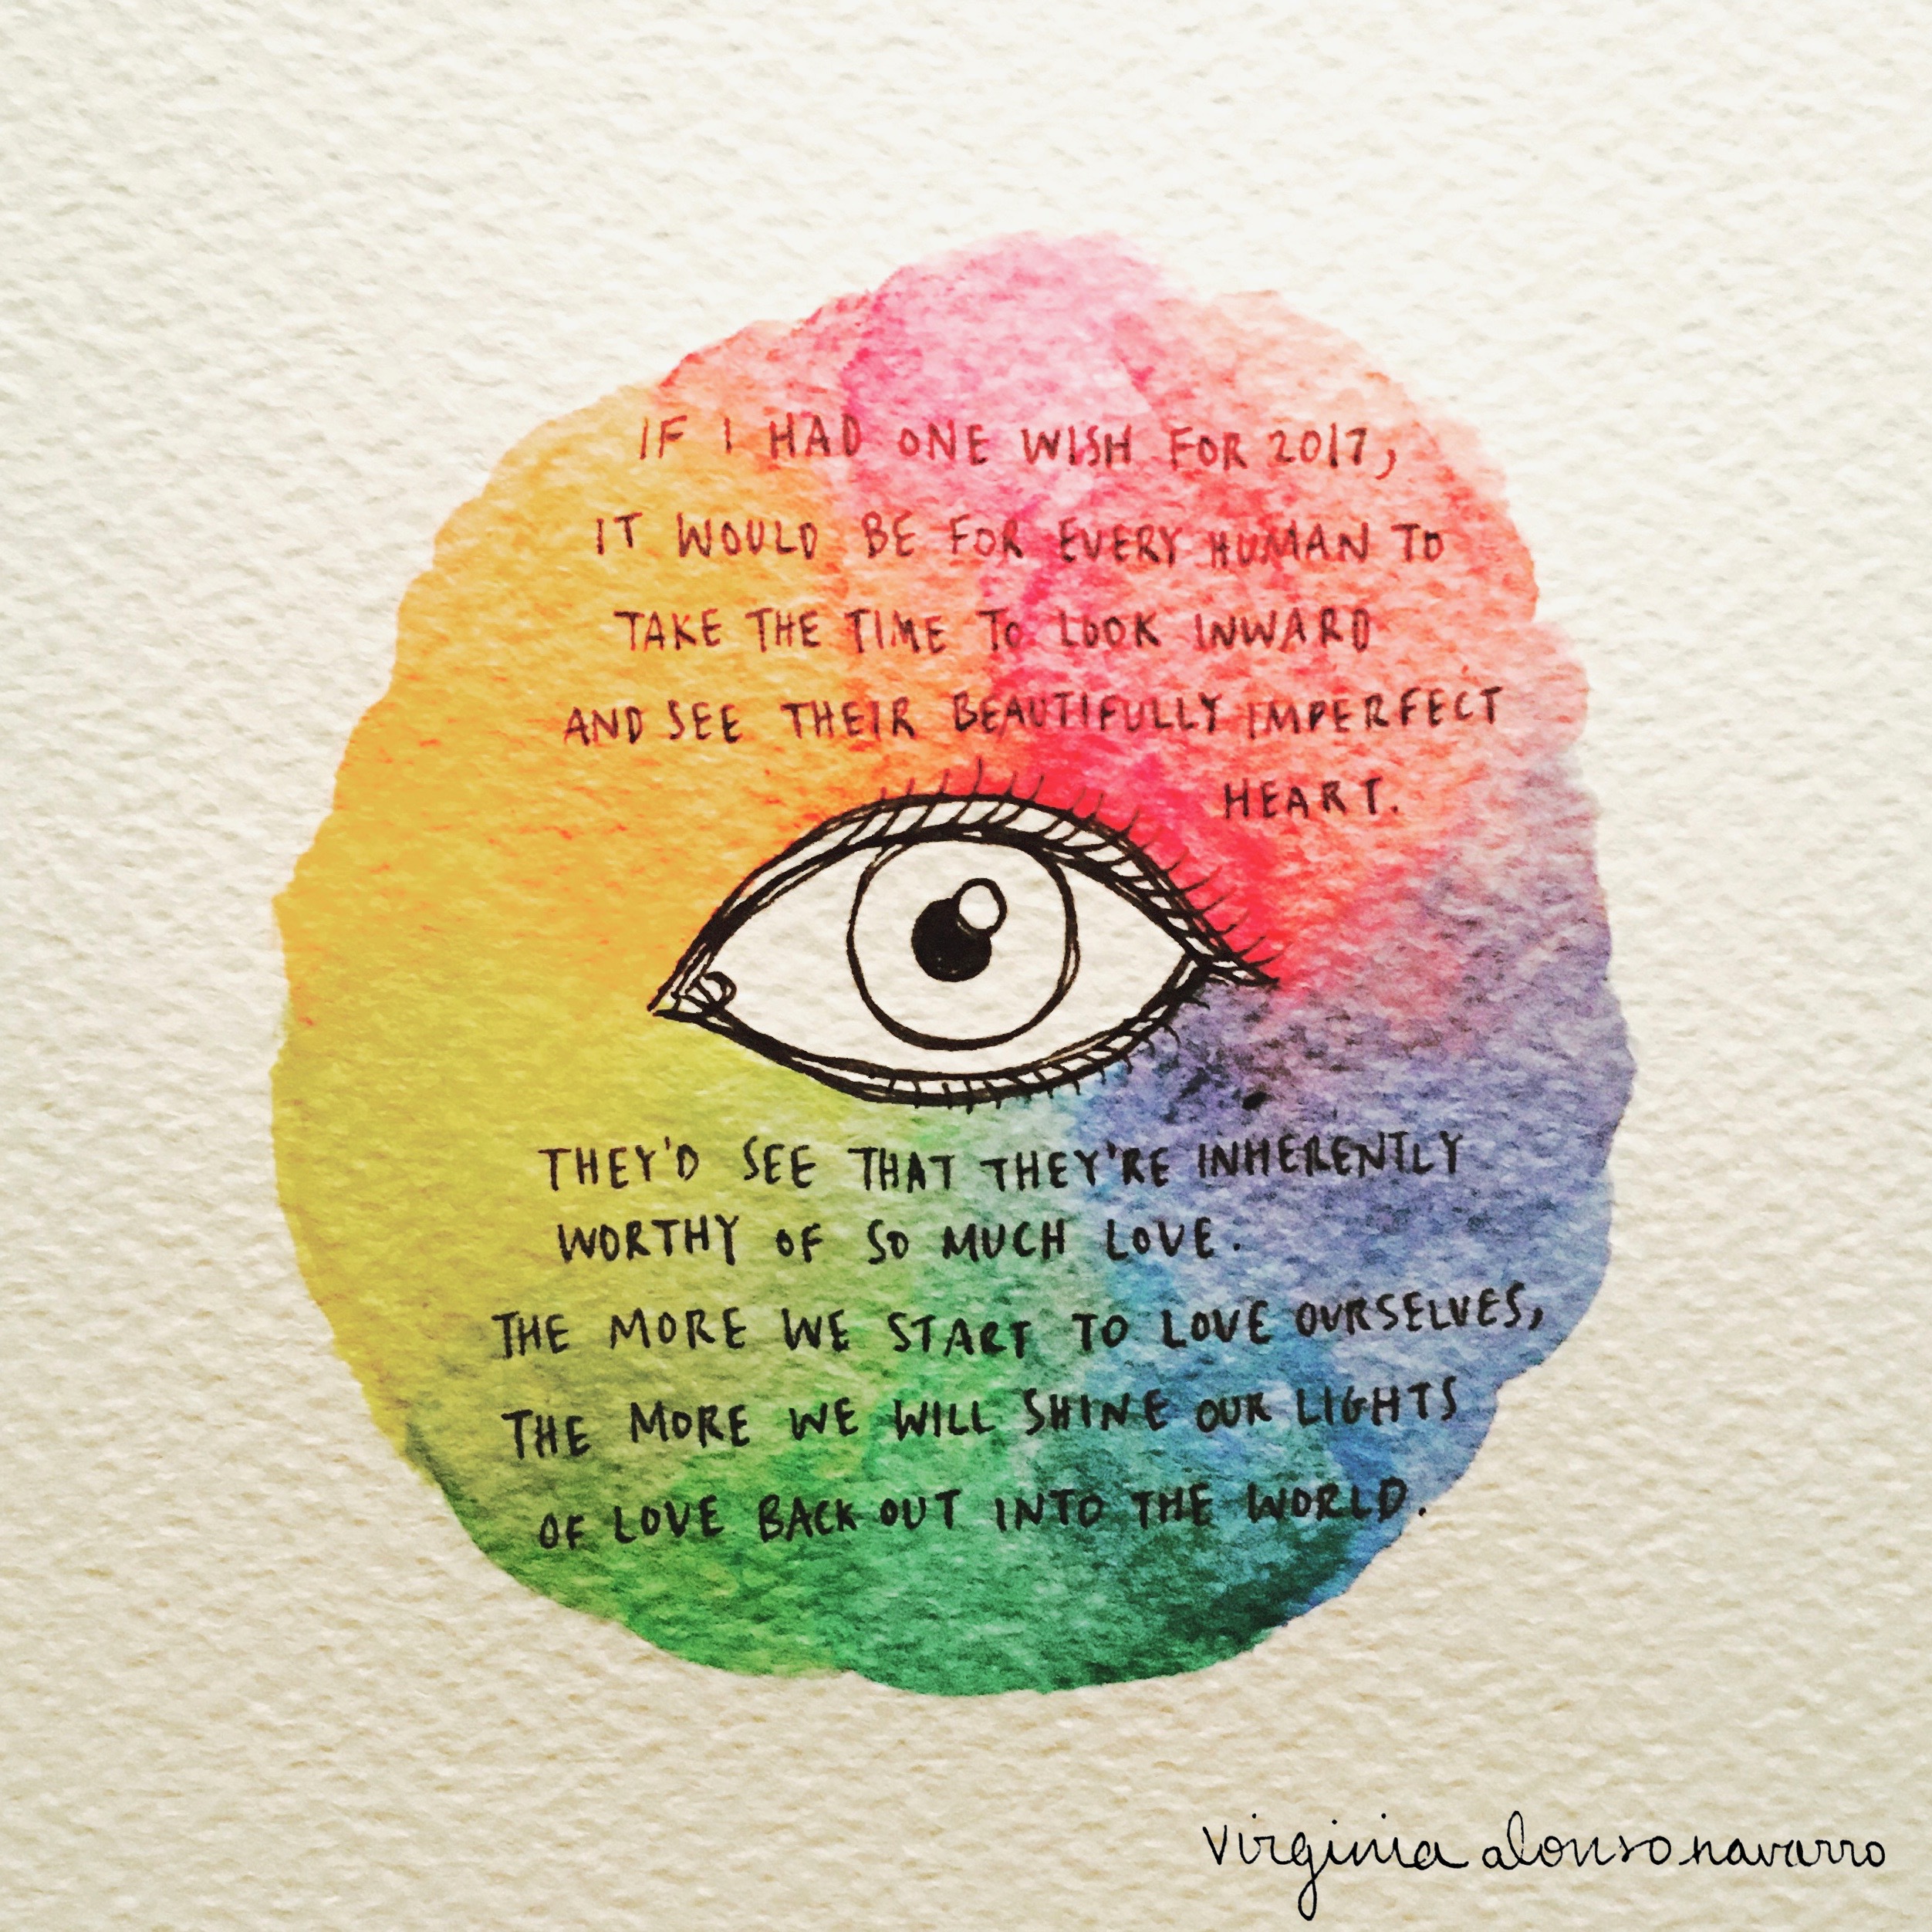 IF I HAD ONE WISH FOR 2017,
IT WOULD BE FOR EVERY HUMAN TO
TAKE THE TIME TO LOOK INWARD
AND SEE THEIR BEAUTIFULLY IMPERFECT
HEART.
THEY'D SEE THAT THEY'RE INHERENTLY
WORTHY OF SO MUCH LOVE.
THE MORE WE START TO LOVE OURSELVES,
THE MORE WE WILL SHINE OUR LIGHTS
OF LOVE BACK OUT INTO THE WORLD.
Virginia alonso navarro